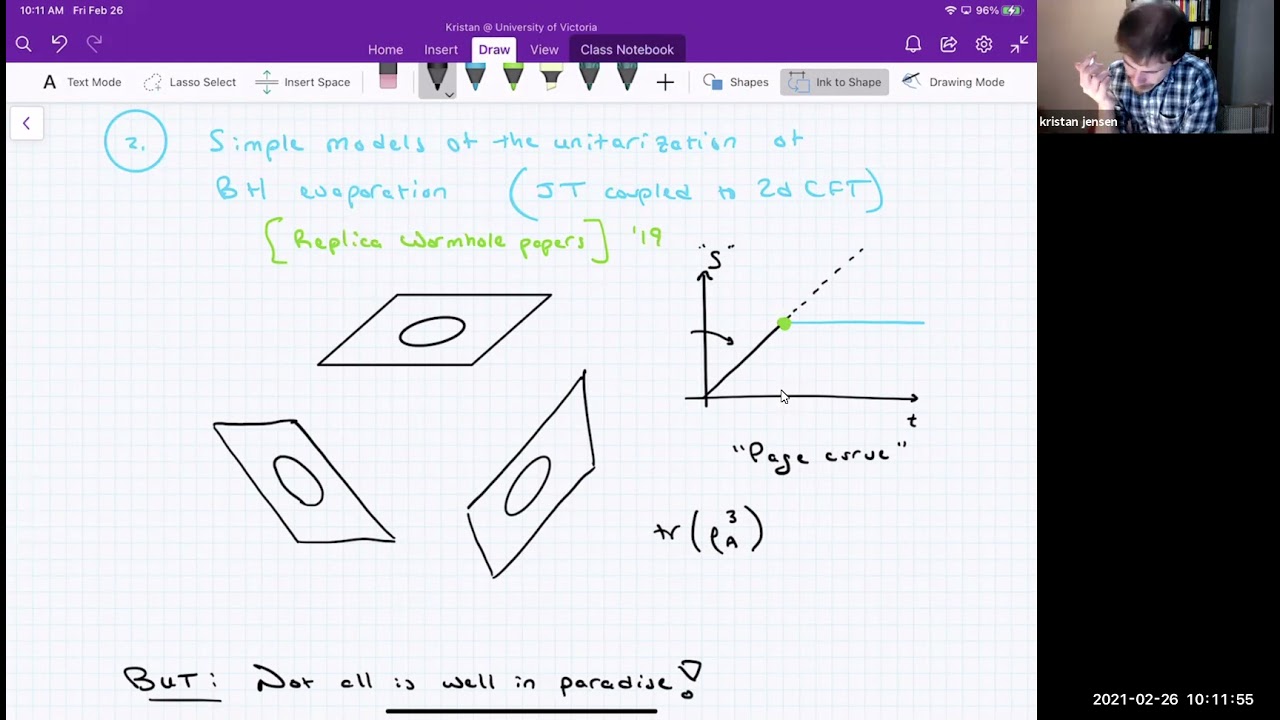 10:11 AM Fri Feb 26
96%
Kristan @ University of Victoria
Home Insert Draw View Class Notebook
A Text Mode Lasso Select Insert Space Shapes Ink to Shape Drawing Mode
kristan jensen
2. Simple models of the unitarization of
BH evaporation (JT coupled to 2d CFT)
[Replica Wormhole papers] '19
"S"
t
"Page curve"
tr(ρ_A^3)
BUT: Not all is well in paradise!
2021-02-26 10:11:55